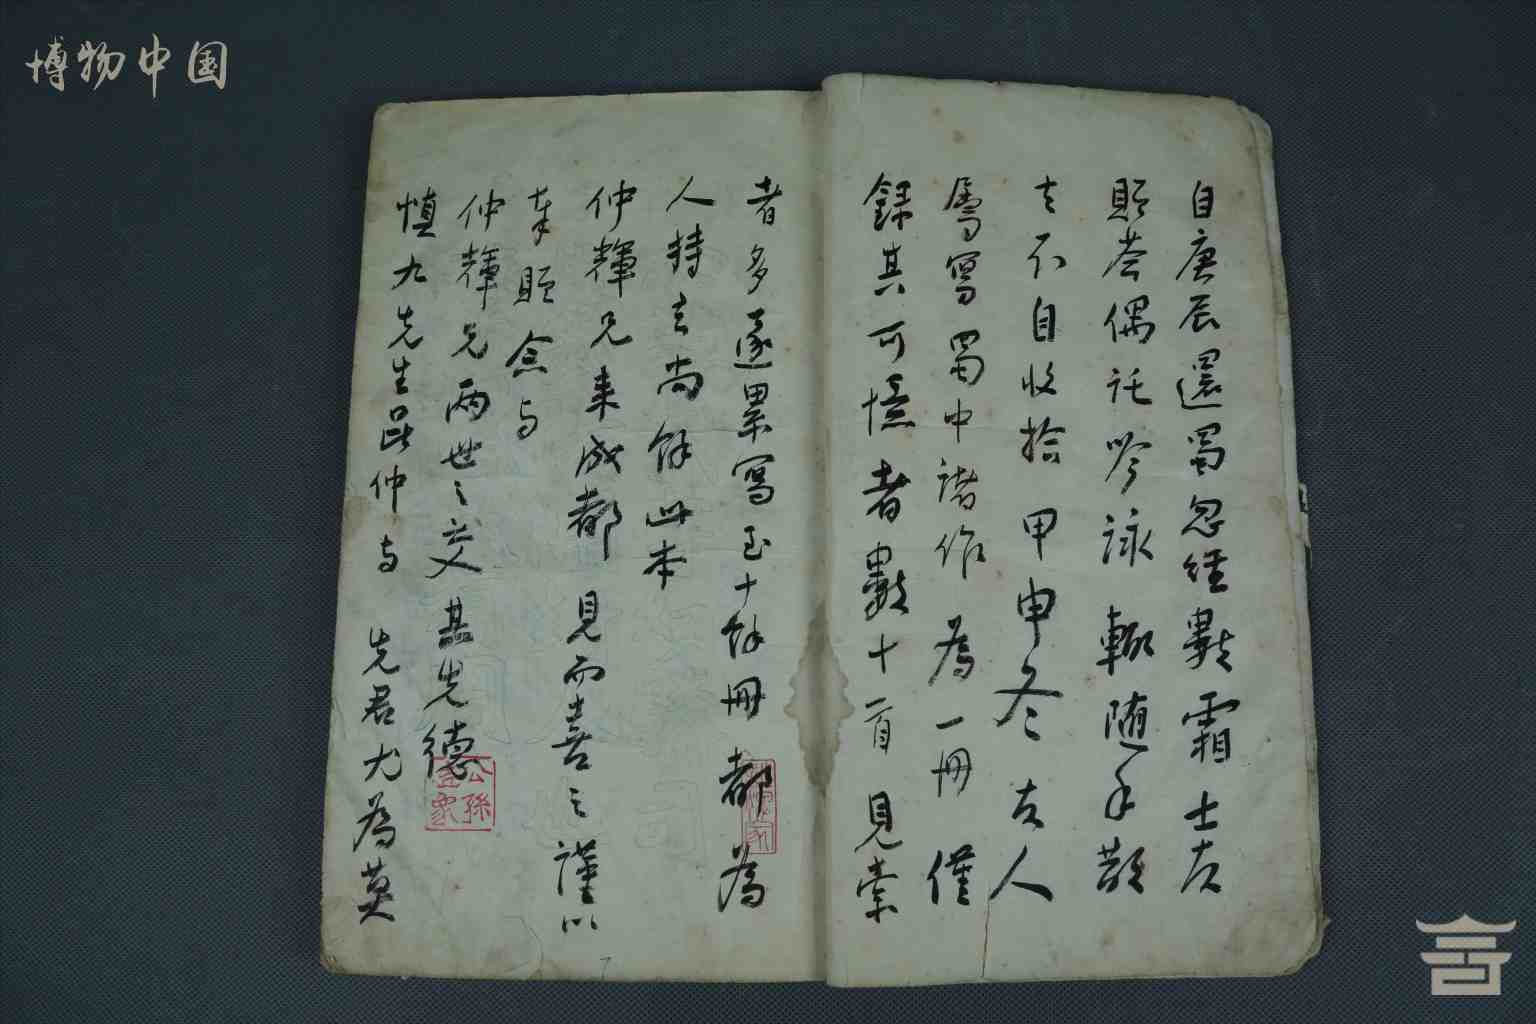 博物中国
自庚辰還蜀忽經數霜士友
賜荅偶託吟詠輒随手散
去不自收拾甲申冬友人
屬寫蜀中諸作為一冊僅
錄其可憶者數十首見索
者多遂累寫至十餘冊都為
人持去尚餘此本
仲輝兄来成都見而喜之謹以
奉貽念与
仲輝兄兩世之交其先德
慎九先生昆仲与先君尤為莫
公孫